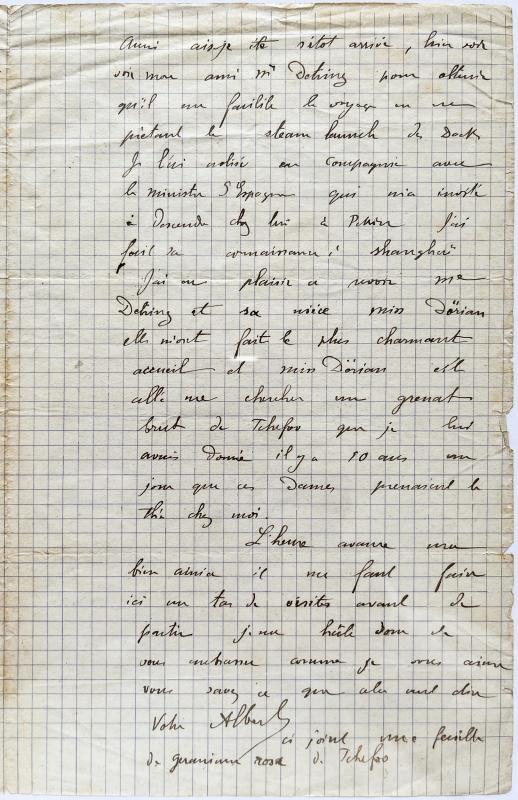 Aussi ai-je été sitôt arrivé, bien vite
voir mon ami Mr Detring pour obtenir
qu'il me facilite le voyage en me
prêtant le steam launch des Docks
Je l'ai réalisé en compagnie avec
le ministre d'Espagne qui m'a invité
à descendre chez lui à Pékin J'ai
fait sa connaissance à Shanghaï
J'ai eu plaisir à revoir Mme
Detring et sa nièce miss Dorian
elles m'ont fait le plus charmant
accueil et miss Dorian est
allée me chercher un grenat
brut de Tchefoo que je lui
avais donné il y a 10 ans un
jour que ces Dames prenaient le
thé chez moi.
L'heure avance ma
bien aimée il me faut faire
ici un tas de visites avant de
partir je me hâte donc de
vous embrasser comme je vous aime
vous savez ce que cela veut dire
Votre Albert
ci joint une feuille
de geranium rosa de Tchefoo